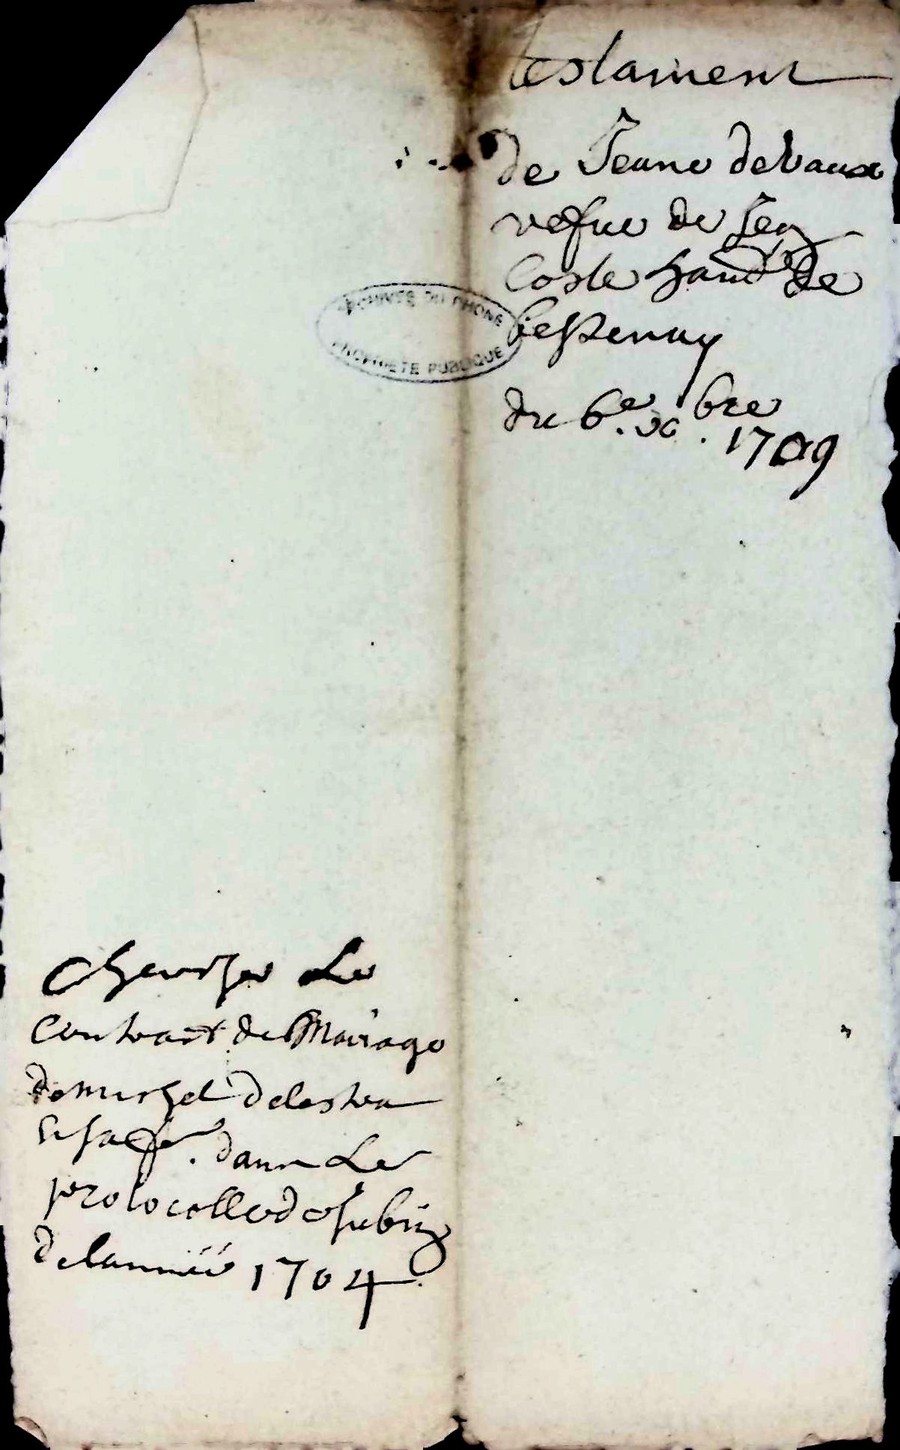 testament
de Jeane devaux
vefue de Jea
Coste hand de
Bessenay
du 6e bre
1709
ARCHIVES DU RHONE
PROPRIETE PUBLIQUE
Chercher Le
Contract de Mariage
de michel delestra
sa dans Les
protocolles de
de lannéé 1704